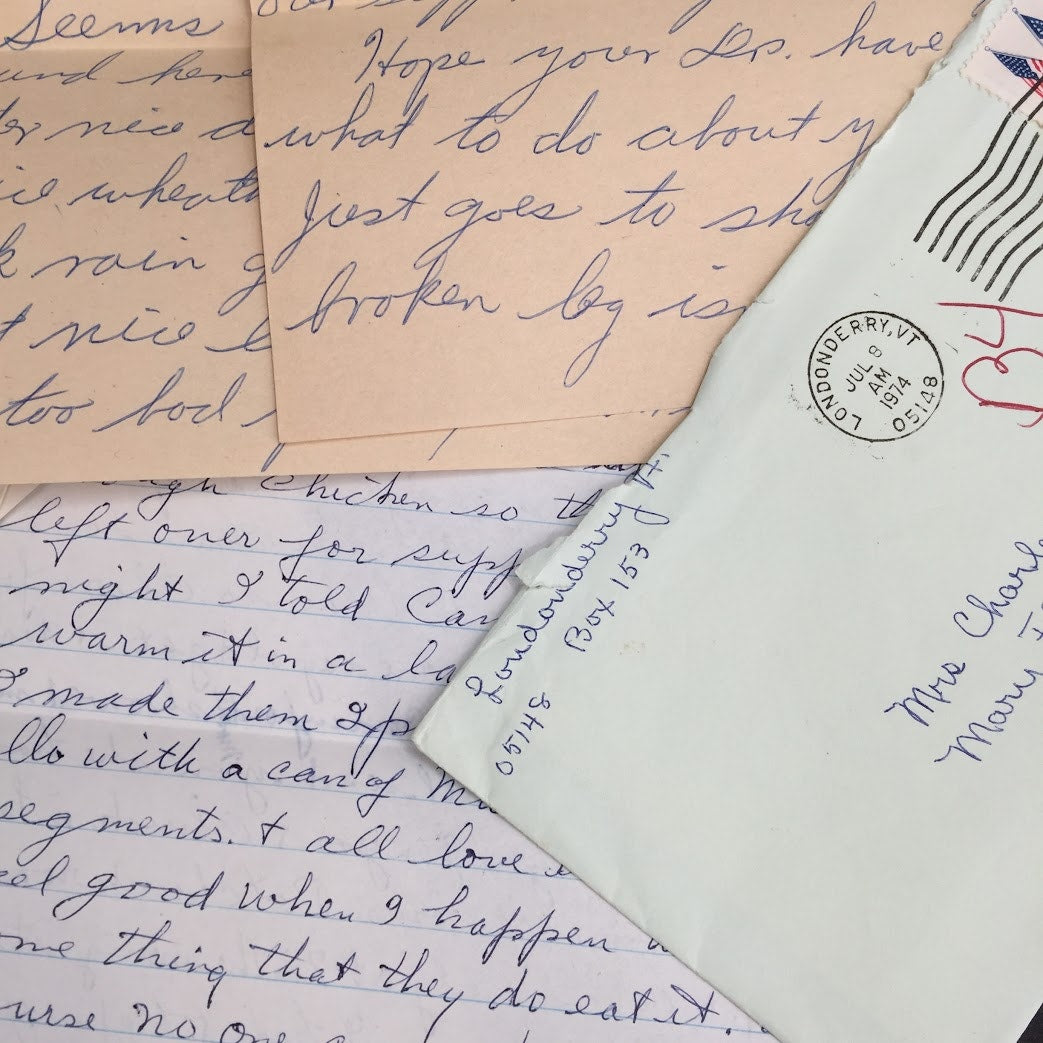 Seems
und here
ter nice d
ice wheath
k rain g
t nice
too bad
Hope your Drs. have
what to do about y
Just goes to sho
broken leg is
ugh chicken so th
left over for supp
night I told Car
warm it in a la
I made them 2 p
llo with a can of M
segments. + all love
eel good when I happen
ome thing that they do eat it.
urse no one
Londonderry Vt.
Box 153
05148
LONDONDERRY, VT
JUL 8
AM
1974
05148
B4
Mrs Charl
Mary